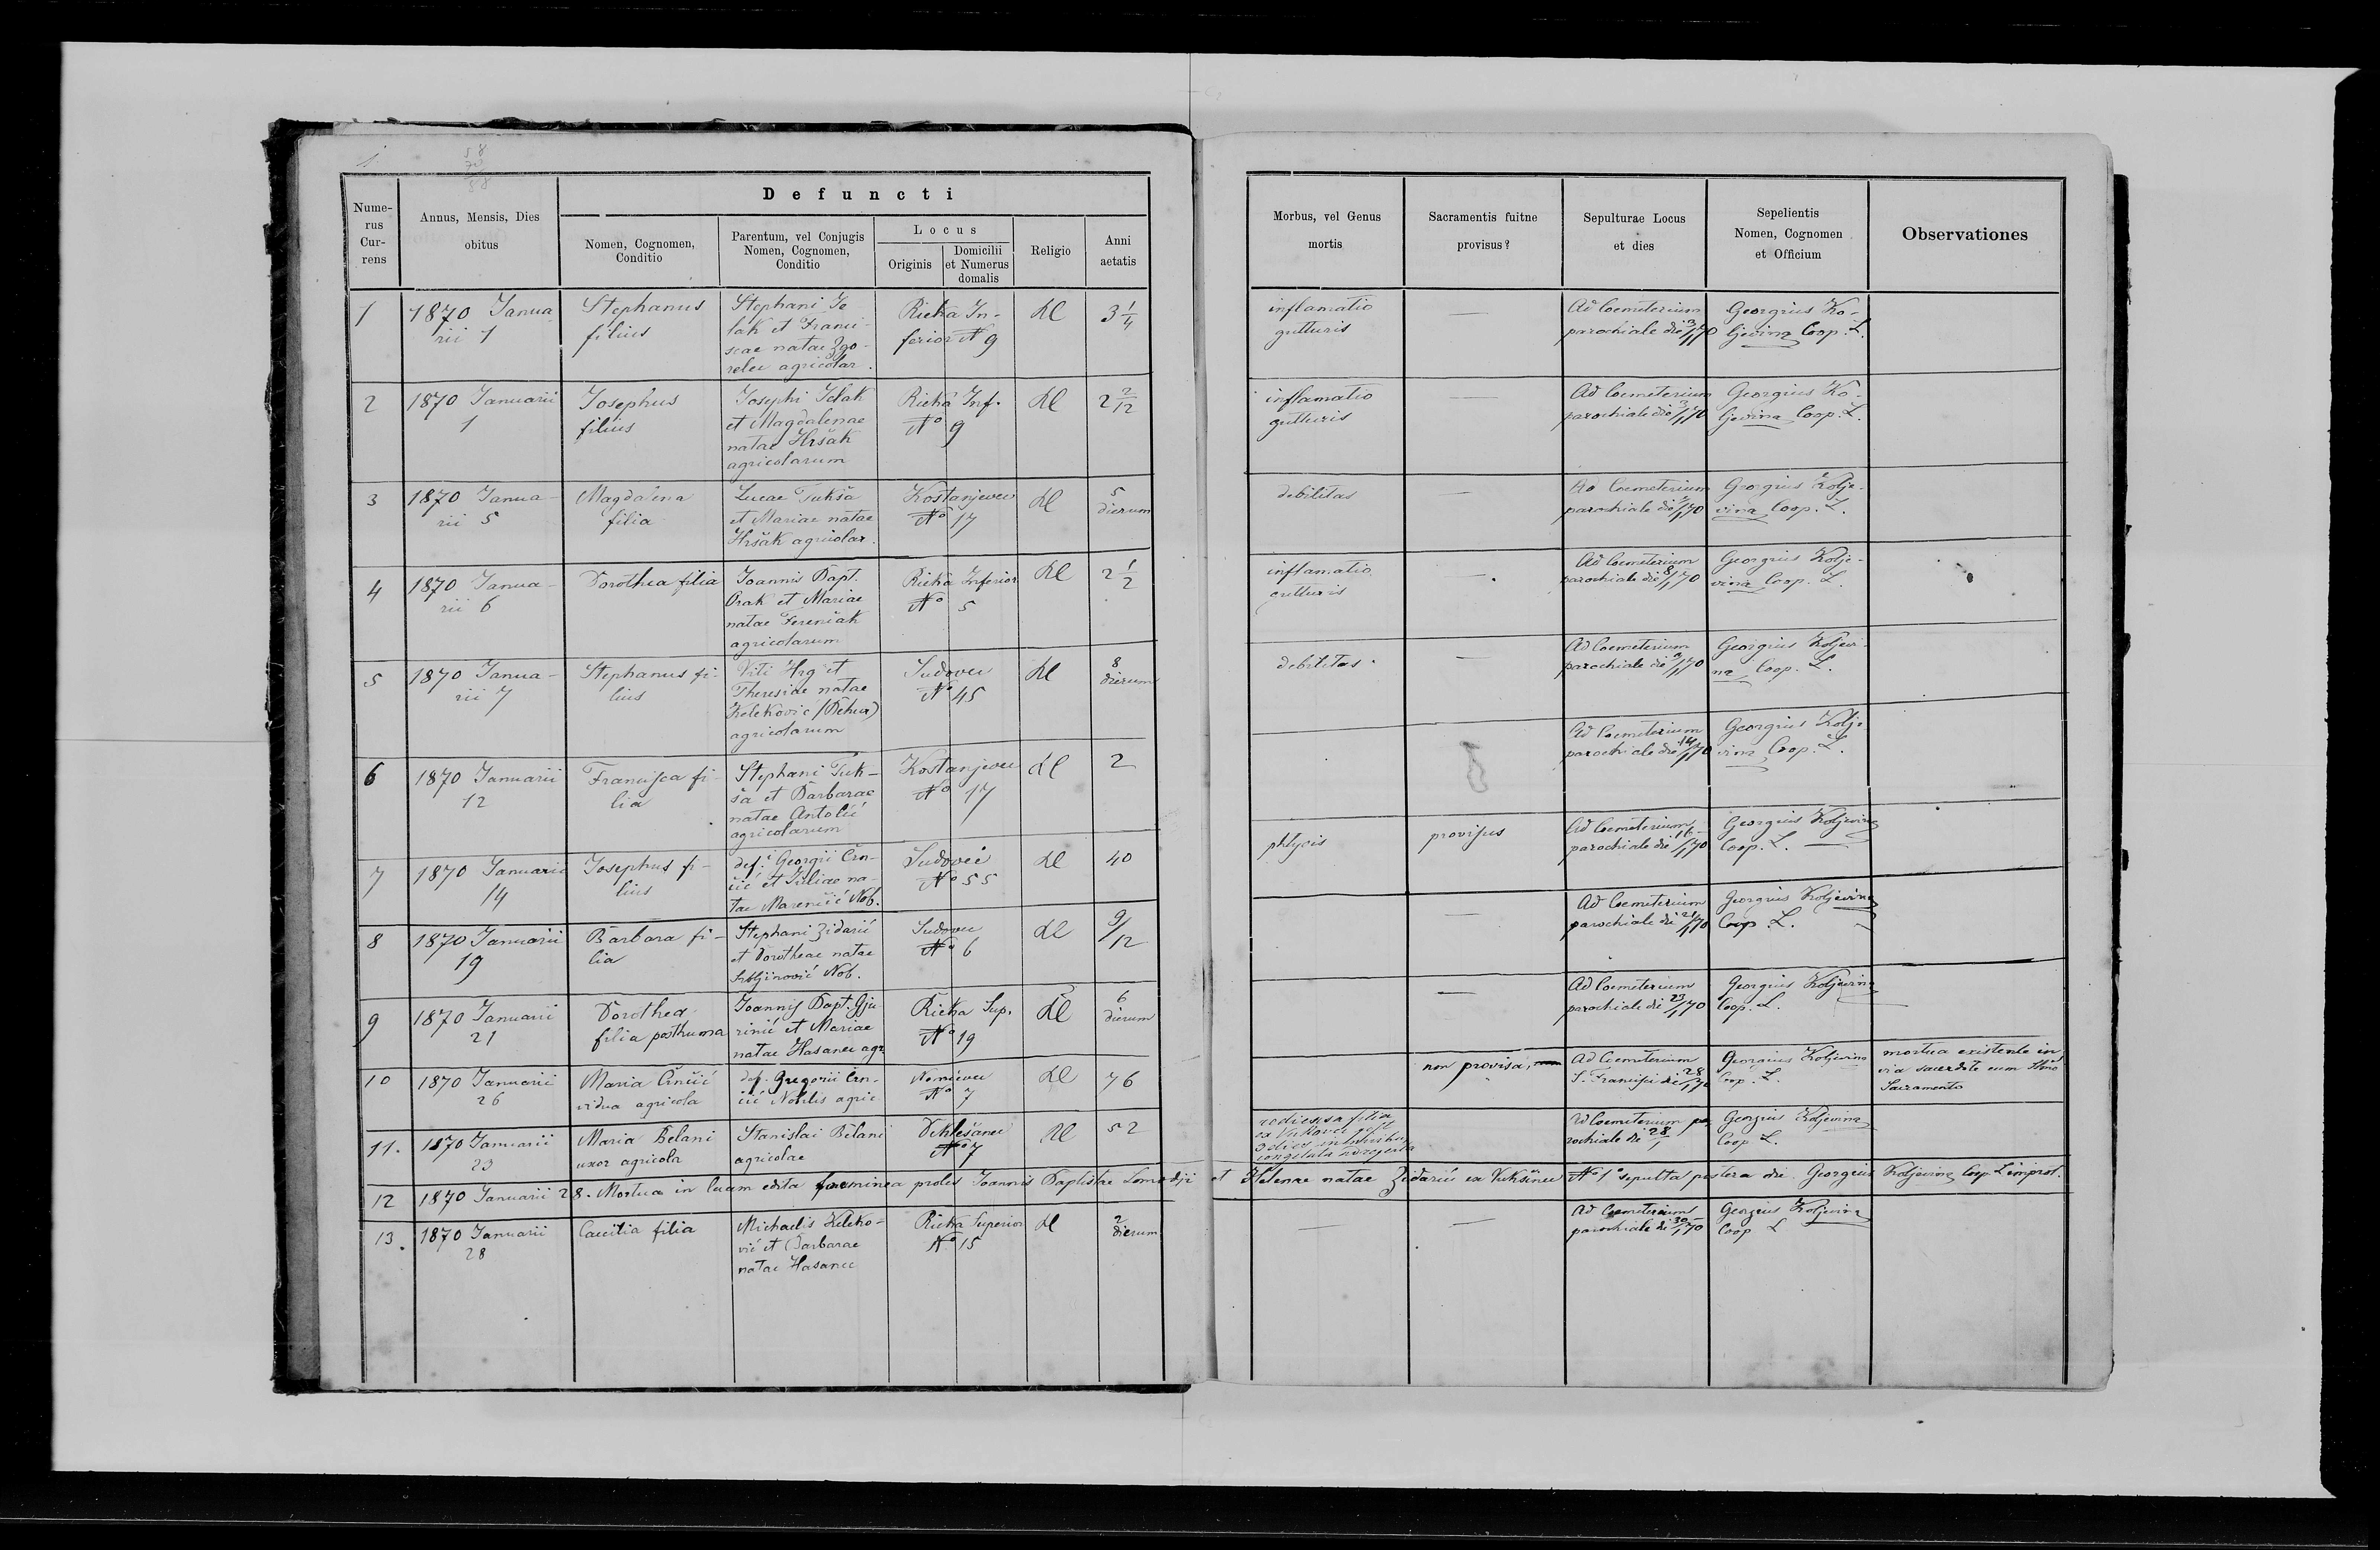 1
58
70
58
Defuncti
Nume-
rus
Cur-
rens
Annus, Mensis, Dies
obitus
Nomen, Cognomen,
Conditio
Parentum, vel Conjugis
Nomen, Cognomen,
Conditio
Locus
Originis
Domicilii
et Numerus
domalis
Religio
Anni
aetatis
Morbus, vel Genus
mortis
Sacramentis fuitne
provisus?
Sepulturae Locus
et dies
Sepelientis
Nomen, Cognomen
et Officium
Observationes
1
1870 Janua
rii 1
Stephanus
filius
Stephani Je
lak et Franci-
scae natae Zgo-
relec agricolar.
Rieka In-
ferior N 9
Rl
3 1/4
inflamatio
gutturis
—
Ad Coemeterium
parochiale die 3/1 70
Georgius Ko-
ljevina Coop. L.
2
1870 Januarii
1
Josephus
filius
Josephi Jelak
et Magdalenae
natae Hršak
agricolarum
Rieka Inf.
No 9
Rl
2 2/12
inflamatio
gutturis
—
Ad Coemeterium
parochiale die 3/1 70
Georgius Ko-
ljevina Coop. L.
3
1870 Janua-
rii 5
Magdalena
filia
Lucae Tukša
et Mariae natae
Hršak agricolar.
Kostanjevec
No 17
Rl
5
dierum
debilitas
—
Ad Coemeterium
parochiale die /1 70
Georgius Kolje-
vina Coop. L.
4
1870 Janua-
rii 6
Dorothea filia
Joannis Bapt.
Orak et Mariae
natae Ferenčak
agricolarum
Rieka Inferior
No 5
Rl
2 1/2
inflamatio
gutturis
—
Ad Coemeterium
parochiale die 8/1 70
Georgius Kolje-
vina Coop. L.
5
1870 Janua-
rii 7
Stephanus fi-
lius
Viti Hrg et
Theresiae natae
Keleković
agricolarum
Sudovec
No 45
Rl
8
dierum
debilitas
—
Ad Coemeterium
parochiale die 9/1 70
Georgius Koljevi-
na Coop. L.
6
1870 Januarii
12
Francisca fi-
lia
Stephani Tuk-
ša et Barbarae
natae Antolić
agricolarum
Kostanjevec
No 17
Rl
2
Ad Coemeterium
parochiale die 14/1 70
Georgius Kolje-
vina Coop. L.
7
1870 Januarii
14
Josephus fi-
lius
def. Georgii Črn-
čić et Juliae na-
tae Marenčić Nob.
Sudovec
No 55
Rl
40
phtysis
provisus
Ad Coemeterium
parochiale die 16/1 70
Georgius Koljevina
Coop. L.
8
1870 Januarii
19
Barbara fi-
lia
Stephani Zidarić
et Dorotheae natae
Nob.
Sudovec
No 6
Rl
9/12
—
Ad Coemeterium
parochiale die 21/1 70
Georgius Koljevina
Coop. L.
9
1870 Januarii
21
Dorothea
filia posthuma
Joannis Bapt. Gju
rinić et Mariae
natae Hasanec agr.
Rieka Sup.
No 19
Rl
6
dierum
—
Ad Coemeterium
parochiale die 23/1 70
Georgius Koljevina
Coop. L.
10
1870 Januarii
26
Maria Črnčić
vidua agricola
def. Gregorii Črn-
čić Nobilis agric.
Nemčevec
No 7
Rl
76
non provisa,
Ad Coemeterium
S. Francisci die 28/1 70
Georgius Koljevina
Coop. L.
mortua existente in
via sacerdote cum Smo
Sacramento
11.
1870 Januarii
23
Maria Belani
uxor agricola
Stanislai Belani
agricolae
No 7
Rl
52
filia
Ad Coemeterium pa
rochiale die 28/1
Georgius Koljevina
Coop. L.
12
1870 Januarii 28. Mortua in lucem edita foeminea proles Joannis Baptistae et Helenae natae Zidarić ex Vukšinec No 1 sepulta postera die. Georgius Koljevina Coop. L. improt.
13.
1870 Januarii
28
Caecilia filia
Michaelis Keleko-
vić et Barbarae
natae Hasanec
Rieka Superior
No 15
Rl
2
dierum
—
—
Ad Coemeterium
parochiale die 30/1 70
Georgius Koljevina
Coop. L